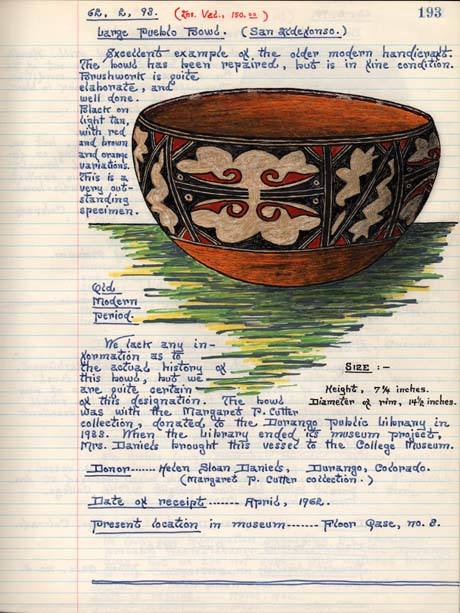 62. 2, 93. (Ins. Val., 150.00)
193
Large Pueblo Bowl. (San Ildefonso.)
Excellent example of the older modern handicraft.
The bowl has been repaired, but is in fine condition.
Brushwork is quite
elaborate, and
well done.
Black on
light tan,
with red
and brown
and orange
variations.
This is a
very out-
standing
specimen.
Old
Modern
Period.
We lack any in-
formation as to
the actual history of
this bowl, but we
are quite certain
of this designation. The bowl
was with the Margaret P. Cutter
collection, donated to the Durango Public Library in
1938. When the Library ended its museum project,
Mrs. Daniels brought this vessel to the College Museum.
SIZE :-
Height, 7 1/4 inches.
Diameter of rim, 14 1/2 inches.
Donor---- Helen Sloan Daniels, Durango, Colorado.
(Margaret P. Cutter collection.)
Date of receipt ------- April, 1962.
Present location in museum------ Floor Case, no. 8.